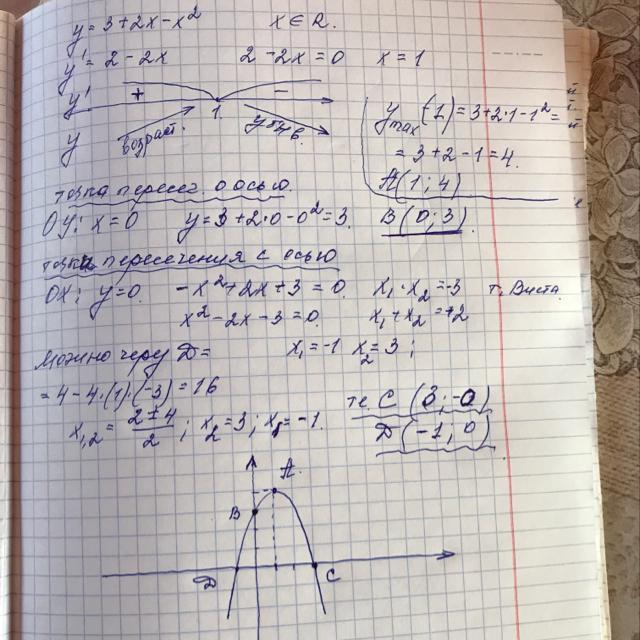 y = 3 + 2x - x²   x ∈ R.
y' = 2 - 2x   2 - 2x = 0   x = 1
y'   +   1.   -
y   возраст.
y max (1) = 3 + 2·1 - 1² =
= 3 + 2 - 1 = 4.
A(1; 4)
точка пересеч. с осью.
OY: x = 0   y = 3 + 2·0 - 0² = 3.   B(0; 3)
точки пересечения с осью
OX: y = 0.   -x² + 2x + 3 = 0.   x₁·x₂ = -3   т. Виета.
x² - 2x - 3 = 0.   x₁ + x₂ = +2
x₁ = -1   x₂ = 3;
Можно через D =
= 4 - 4·(1)·(-3) = 16
x₁,₂ = (2 ± 4)/2; x₂ = 3; x₁ = -1.
C (3; 0)
D (-1; 0)
A.
B
D   C